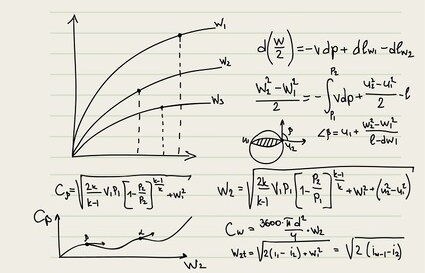 W₁
W₂
W₃
d(w/2) = -vdp + dlw₁ - dlw₂
(W₂² - W₁²)/2 = -∫_{P₁}^{P₂} vdp + (u₂² - u₁²)/2 - l
β
u₁
u₂
∠β = u₁ + (w₂² - w₁²)/(l - dw₁)
Cρ = √(2k/(k-1) V₁P₁ [1 - P₂/P₂]^{(k-1)/k} + w₁²
W₂ = √(2k/(k-1) V₁P₁ [1 - P₂/P₁]^{(k-1)/k} + W² + (u₂² - u₁²)
Cρ
β
α
W₂
Cw = 3600·π d²/4 · W₂
W₂t = √2(i₁ - i₂) + w₁² = √2(iw-1 - i₂)